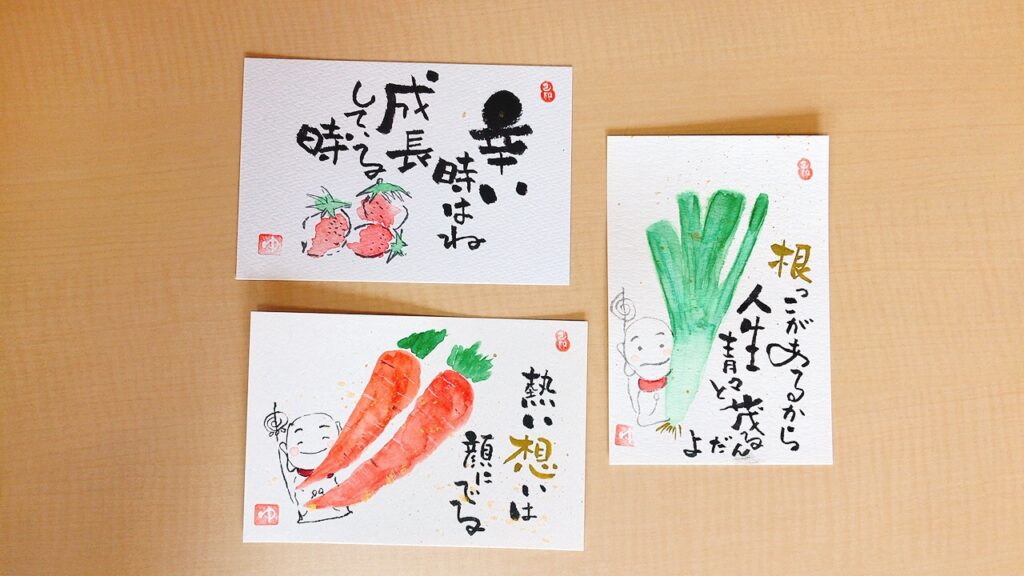 辛い
時はね
成長
している
時
ゆ
熱い
想いは
顔に
でる
ゆ
根っこがあるから
人生
青々と
茂るんだ
よ
ゆ